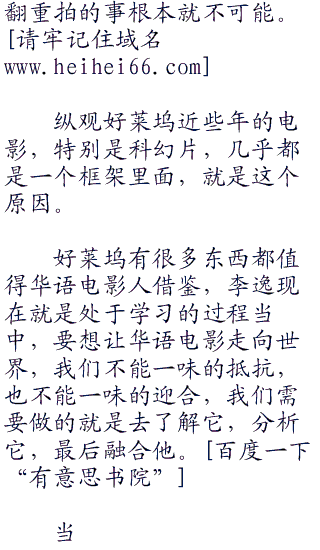 翻重拍的事根本就不可能。
[请牢记住域名
www.heihei66.com]
纵观好菜坞近些年的电
影，特别是科幻片，几乎都
是一个框架里面，就是这个
原因。
好菜坞有很多东西都值
得华语电影人借鉴，李逸现
在就是处于学习的过程当
中，要想让华语电影走向世
界，我们不能一味的抵抗，
也不能一味的迎合，我们需
要做的就是去了解它，分析
它，最后融合他。[百度一下
“有意思书院”]
当